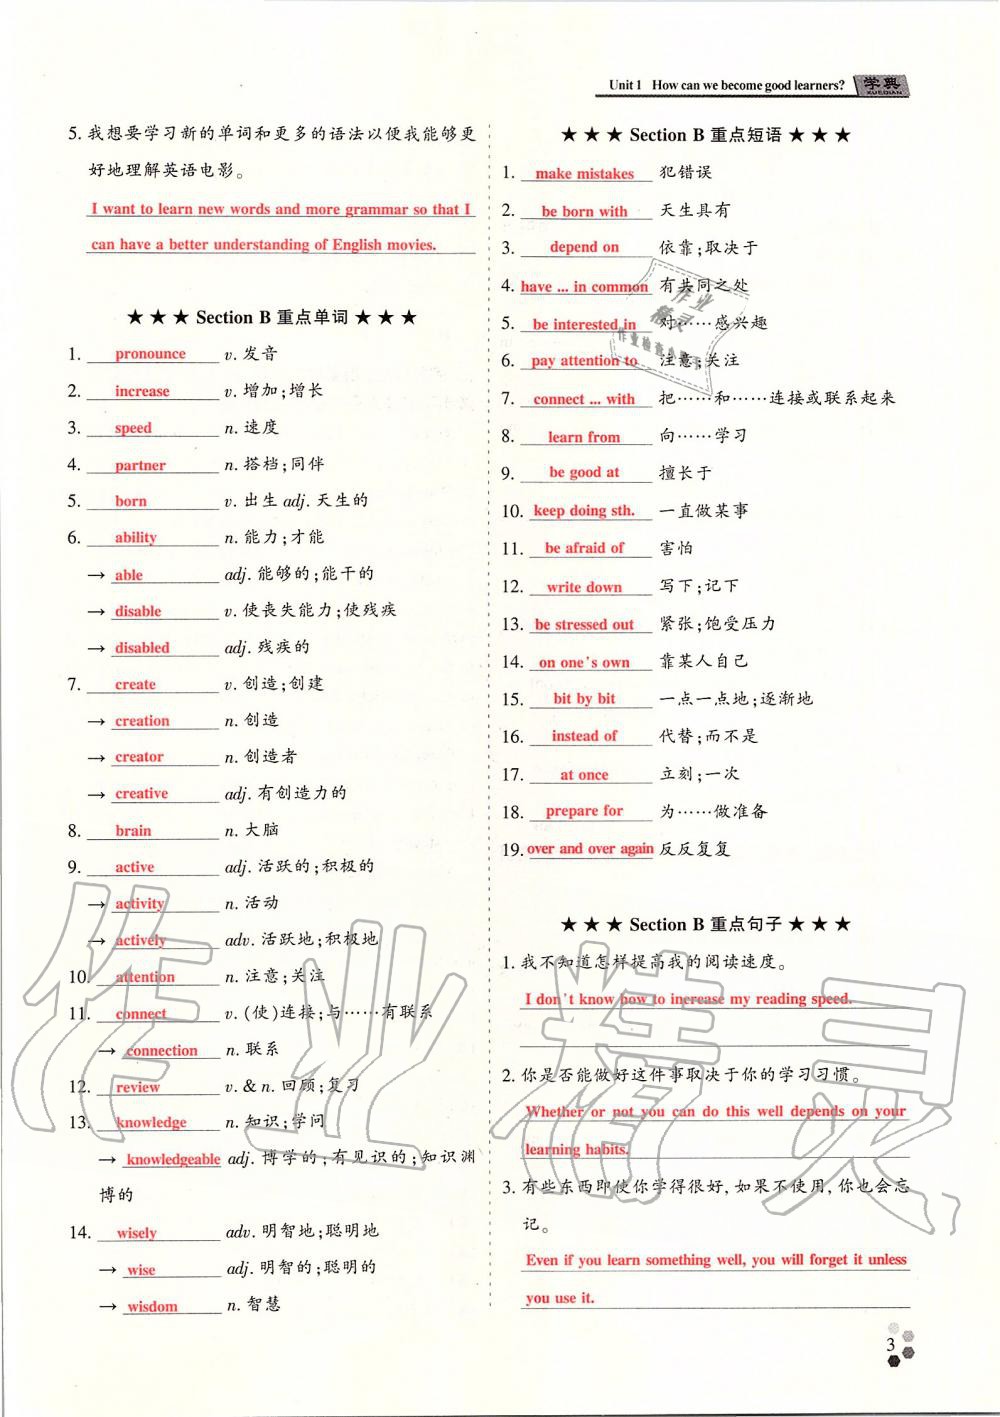 Unit 1 How can we become good learners? 学典
XUEDIAN
5. 我想要学习新的单词和更多的语法以便我能够更
好地理解英语电影。
I want to learn new words and more grammar so that I
can have a better understanding of English movies.
★ ★ ★ Section B 重点单词 ★ ★ ★
1. pronounce v. 发音
2. increase v. 增加;增长
3. speed n. 速度
4. partner n. 搭档;同伴
5. born v. 出生 adj. 天生的
6. ability n. 能力;才能
→ able adj. 能够的;能干的
→ disable v. 使丧失能力;使残疾
→ disabled adj. 残疾的
7. create v. 创造;创建
→ creation n. 创造
→ creator n. 创造者
→ creative adj. 有创造力的
8. brain n. 大脑
9. active adj. 活跃的;积极的
→ activity n. 活动
→ actively adv. 活跃地;积极地
10. attention n. 注意;关注
11. connect v. (使)连接;与……有联系
→ connection n. 联系
12. review v. & n. 回顾;复习
13. knowledge n. 知识;学问
→ knowledgeable adj. 博学的;有见识的;知识渊
博的
14. wisely adv. 明智地;聪明地
→ wise adj. 明智的;聪明的
→ wisdom n. 智慧
★ ★ ★ Section B 重点短语 ★ ★ ★
1. make mistakes 犯错误
2. be born with 天生具有
3. depend on 依靠;取决于
4. have ... in common 有共同之处
5. be interested in 对……感兴趣
6. pay attention to 注意;关注
7. connect ... with 把……和……连接或联系起来
8. learn from 向……学习
9. be good at 擅长于
10. keep doing sth. 一直做某事
11. be afraid of 害怕
12. write down 写下;记下
13. be stressed out 紧张;饱受压力
14. on one's own 靠某人自己
15. bit by bit 一点一点地;逐渐地
16. instead of 代替;而不是
17. at once 立刻;一次
18. prepare for 为……做准备
19. over and over again 反反复复
★ ★ ★ Section B 重点句子 ★ ★ ★
1. 我不知道怎样提高我的阅读速度。
I don't know how to increase my reading speed.
2. 你是否能做好这件事取决于你的学习习惯。
Whether or not you can do this well depends on your
learning habits.
3. 有些东西即使你学得很好,如果不使用,你也会忘
记。
Even if you learn something well, you will forget it unless
you use it.
3
作业精灵
作业
精灵